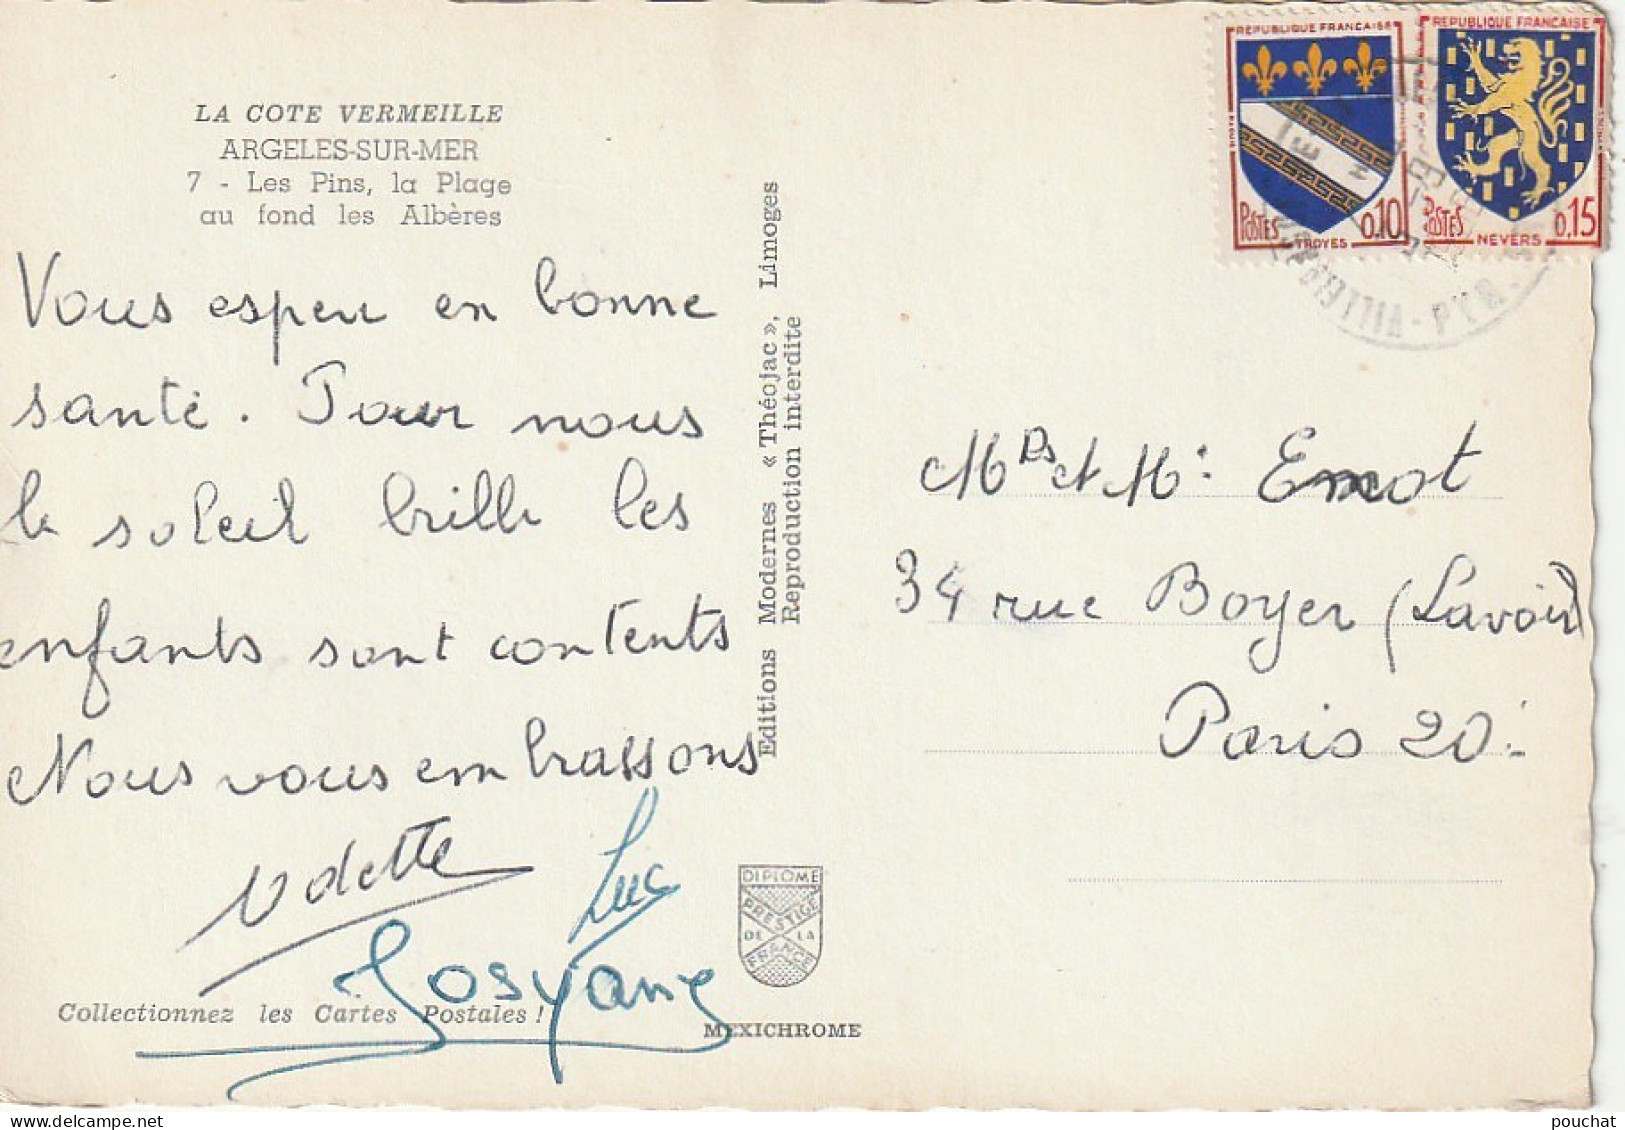 LA COTE VERMEILLE
ARGELES-SUR-MER
7 - Les Pins, la Plage
au fond les Albères
Vous esper en bonne
santé. Pour nous
le soleil brille les
enfants sont contents
Nous vous embrassons
Odette
Luc
Josyane
Collectionnez les Cartes Postales !
Editions Modernes « Théojac », Limoges
Reproduction interdite
DIPLOME
PRESTIGE
DE LA
FRANCE
MEXICHROME
REPUBLIQUE FRANCAISE
POSTES 0,10
TROYES
REPUBLIQUE FRANCAISE
POSTES 0,15
NEVERS
et Mr Emot
34 rue Boyer (Lavoir)
Paris 20
pouchat